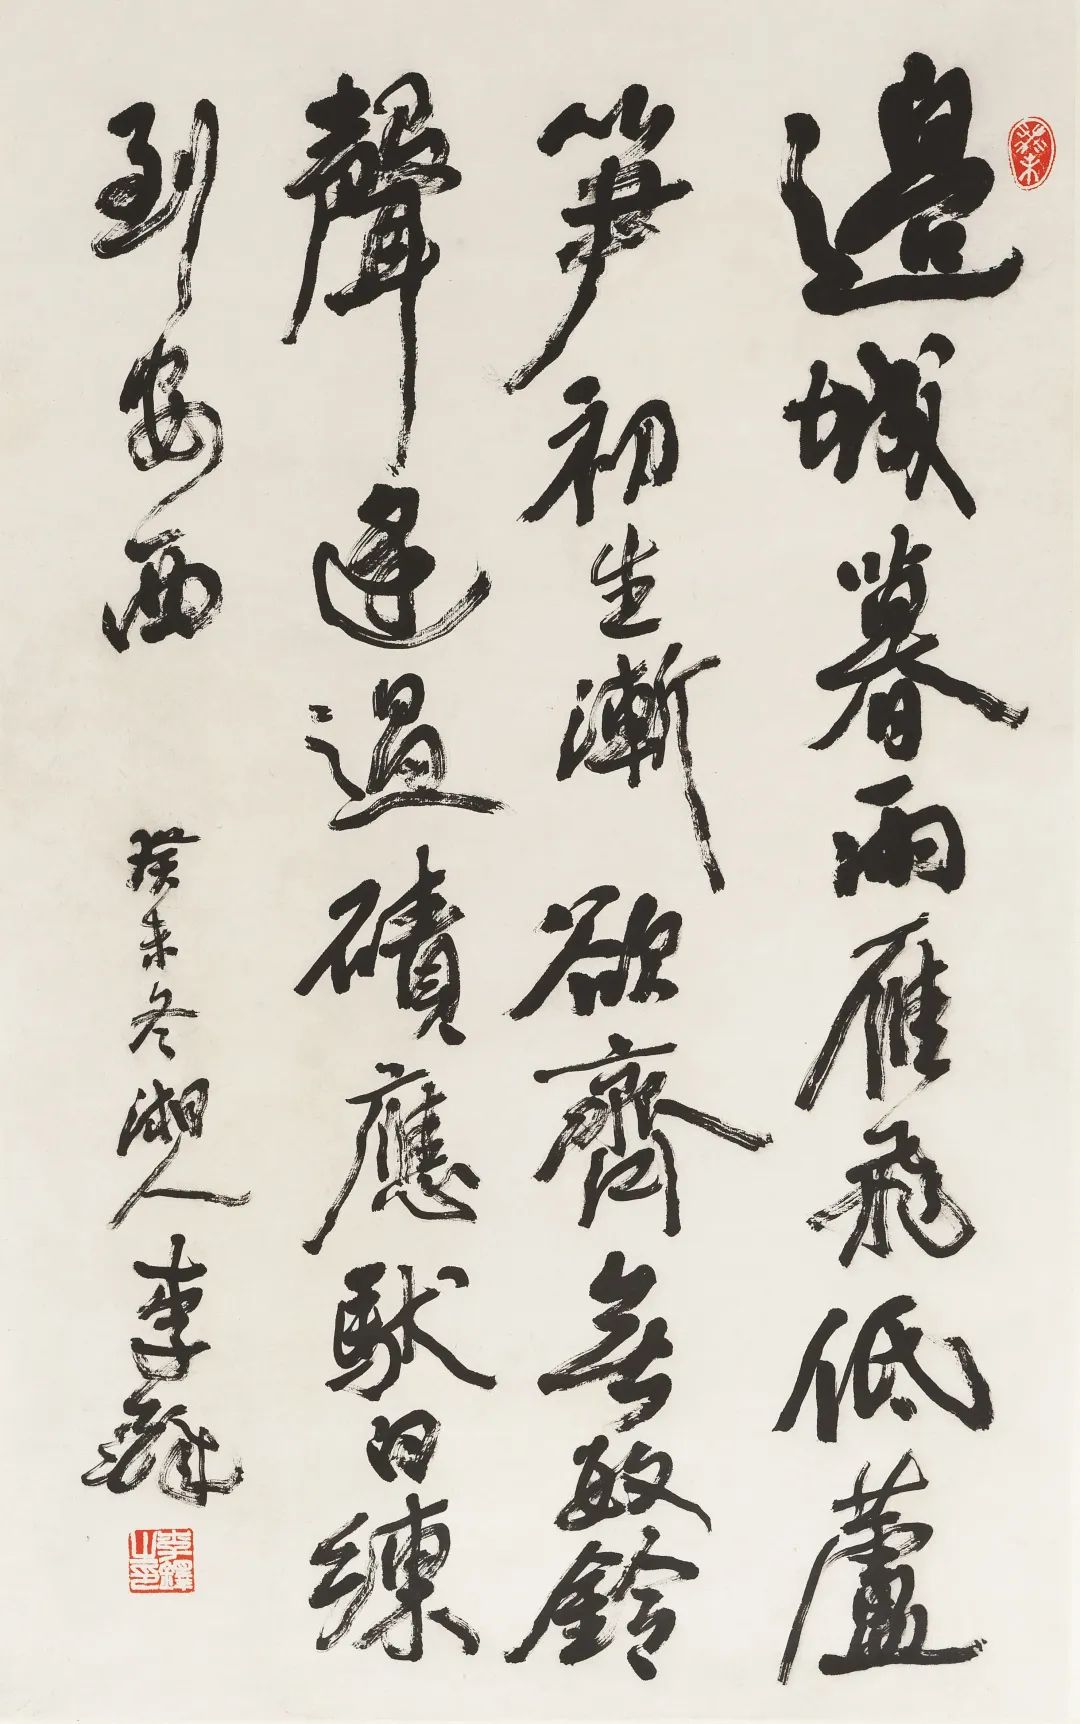 癸未
邊城暮雨雁飛低蘆
笋初生漸欲齊無數鈴
聲遥過磧應馱白練
到安西
癸未冬湘人李鐸
李鐸之印